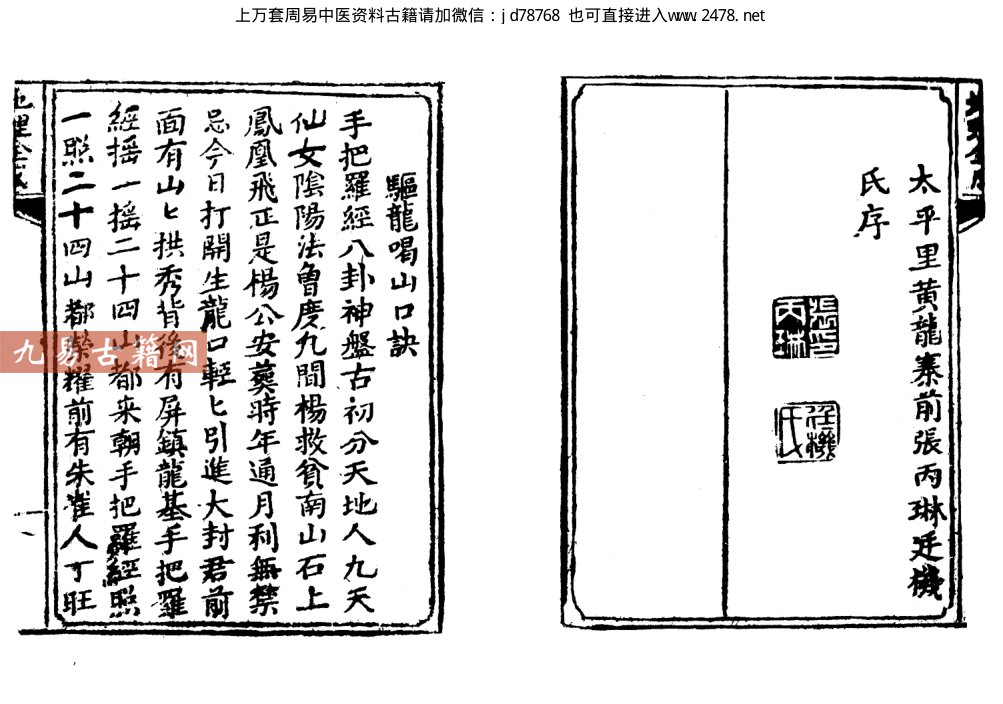 上万套周易中医资料古籍请加微信：jd78768 也可直接进入www.2478.net
太平里黄龍寨前張丙琳廷機
氏序
驅龍喝山口訣
手把羅經八卦神盤古初分天地人九天
仙女陰陽法魯度九間楊救貧南山石上
鳳凰飛正是楊公安葬時年通月利無禁
忌今日打開生龍口輕匕引進大封君前
面有山匕拱秀背後有屏鎮龍基手把羅
經摇一摇二十四山都来朝手把羅經照
一照二十四山都榮耀前有朱雀人丁旺
九易古籍网